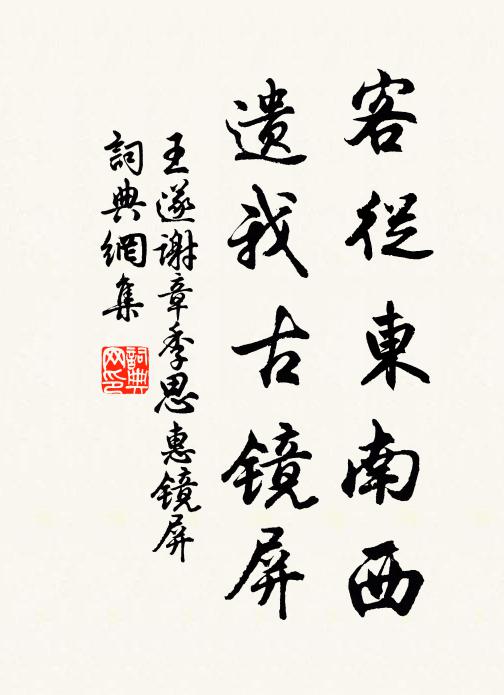 客從東南西
遺我古镜屏
王遂謝章季思惠镜屏
詞典網集
詞典网印